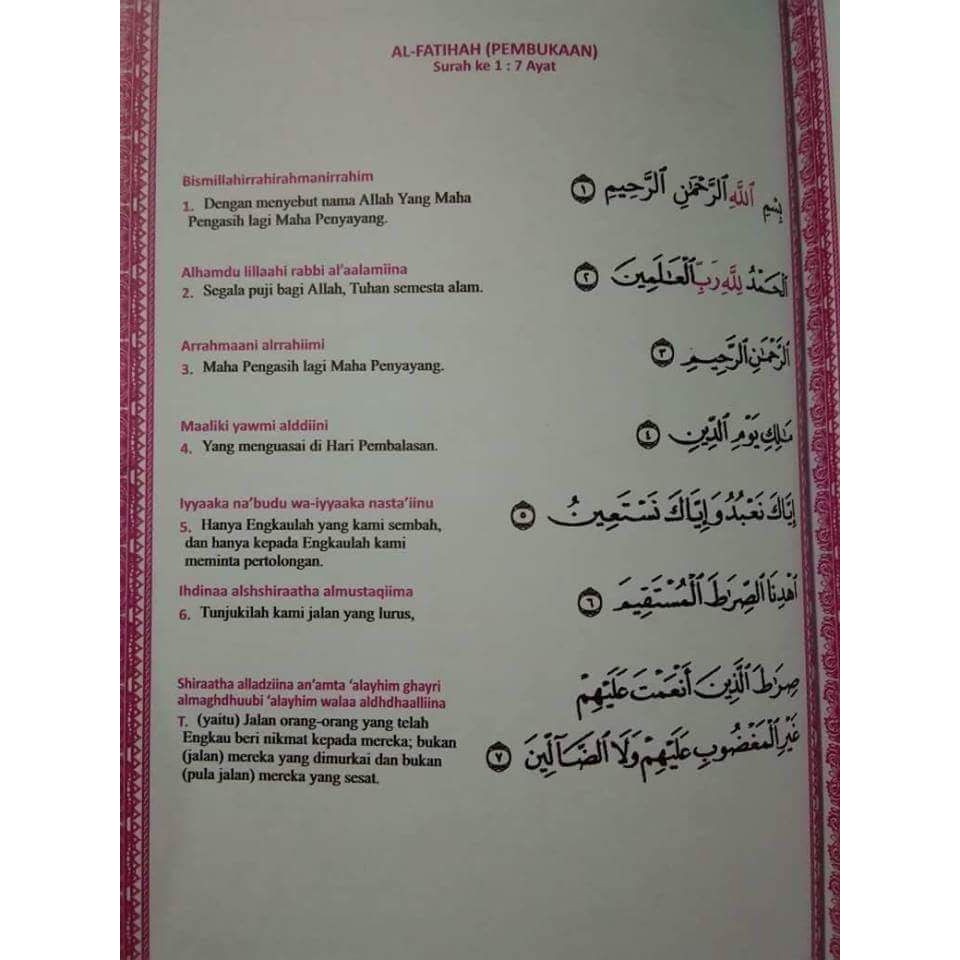 AL-FATIHAH (PEMBUKAAN)
Surah ke 1 : 7 Ayat
Bismillahirrahirahmanirrahim
1. Dengan menyebut nama Allah Yang Maha
Pengasih lagi Maha Penyayang.
بِسْمِ ٱللَّهِ ٱلرَّحْمَٰنِ ٱلرَّحِيمِ ١
Alhamdu lillaahi rabbi al'aalamiina
2. Segala puji bagi Allah, Tuhan semesta alam.
ٱلْحَمْدُ لِلَّهِ رَبِّ ٱلْعَٰلَمِينَ ٢
Arrahmaani alrrahiimi
3. Maha Pengasih lagi Maha Penyayang.
ٱلرَّحْمَٰنِ ٱلرَّحِيمِ ٣
Maaliki yawmi alddiini
4. Yang menguasai di Hari Pembalasan.
مَٰلِكِ يَوْمِ ٱلدِّينِ ٤
Iyyaaka na'budu wa-iyyaaka nasta'iinu
5. Hanya Engkaulah yang kami sembah,
dan hanya kepada Engkaulah kami
meminta pertolongan.
إِيَّاكَ نَعْبُدُ وَإِيَّاكَ نَسْتَعِينُ ٥
Ihdinaa alshshiraatha almustaqiima
6. Tunjukilah kami jalan yang lurus,
ٱهْدِنَا ٱلصِّرَٰطَ ٱلْمُسْتَقِيمَ ٦
Shiraatha alladziina an'amta 'alayhim ghayri
almaghdhuubi 'alayhim walaa aldhdhaalliina
T. (yaitu) Jalan orang-orang yang telah
Engkau beri nikmat kepada mereka; bukan
(jalan) mereka yang dimurkai dan bukan
(pula jalan) mereka yang sesat.
صِرَٰطَ ٱلَّذِينَ أَنْعَمْتَ عَلَيْهِمْ
غَيْرِ ٱلْمَغْضُوبِ عَلَيْهِمْ وَلَا ٱلضَّآلِّينَ ٧